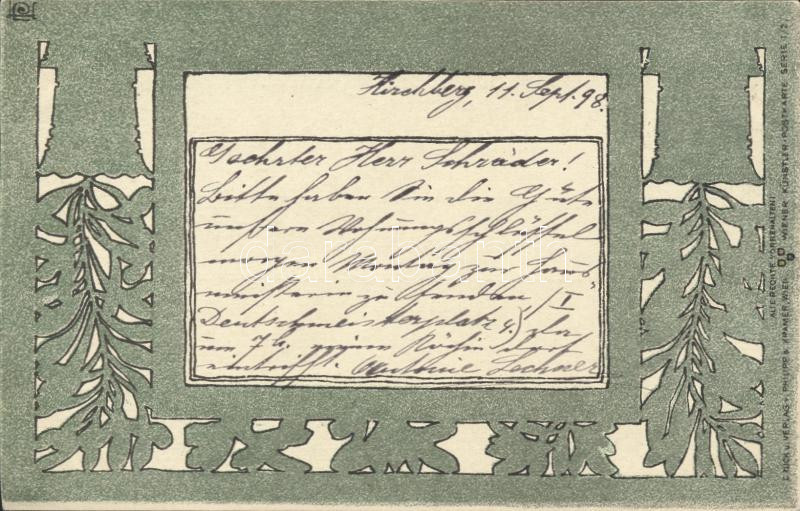 Kirchberg, 11. Sept. 98.
Geehrter Herr Schräder!
Bitte haben Sie die Güte
unseren Wohnungsschlüssel
morgen Montag zur Haus
meisterin zu senden, /I
Deutschmeisterplatz 4.) da
um 7 h. meine Köchin dort
eintrifft. Antonie Lechner
darabanth
PHILIPP & KRAMER WIEN
WIENER KÜNSTLER-POSTKARTE SERIE I/2.